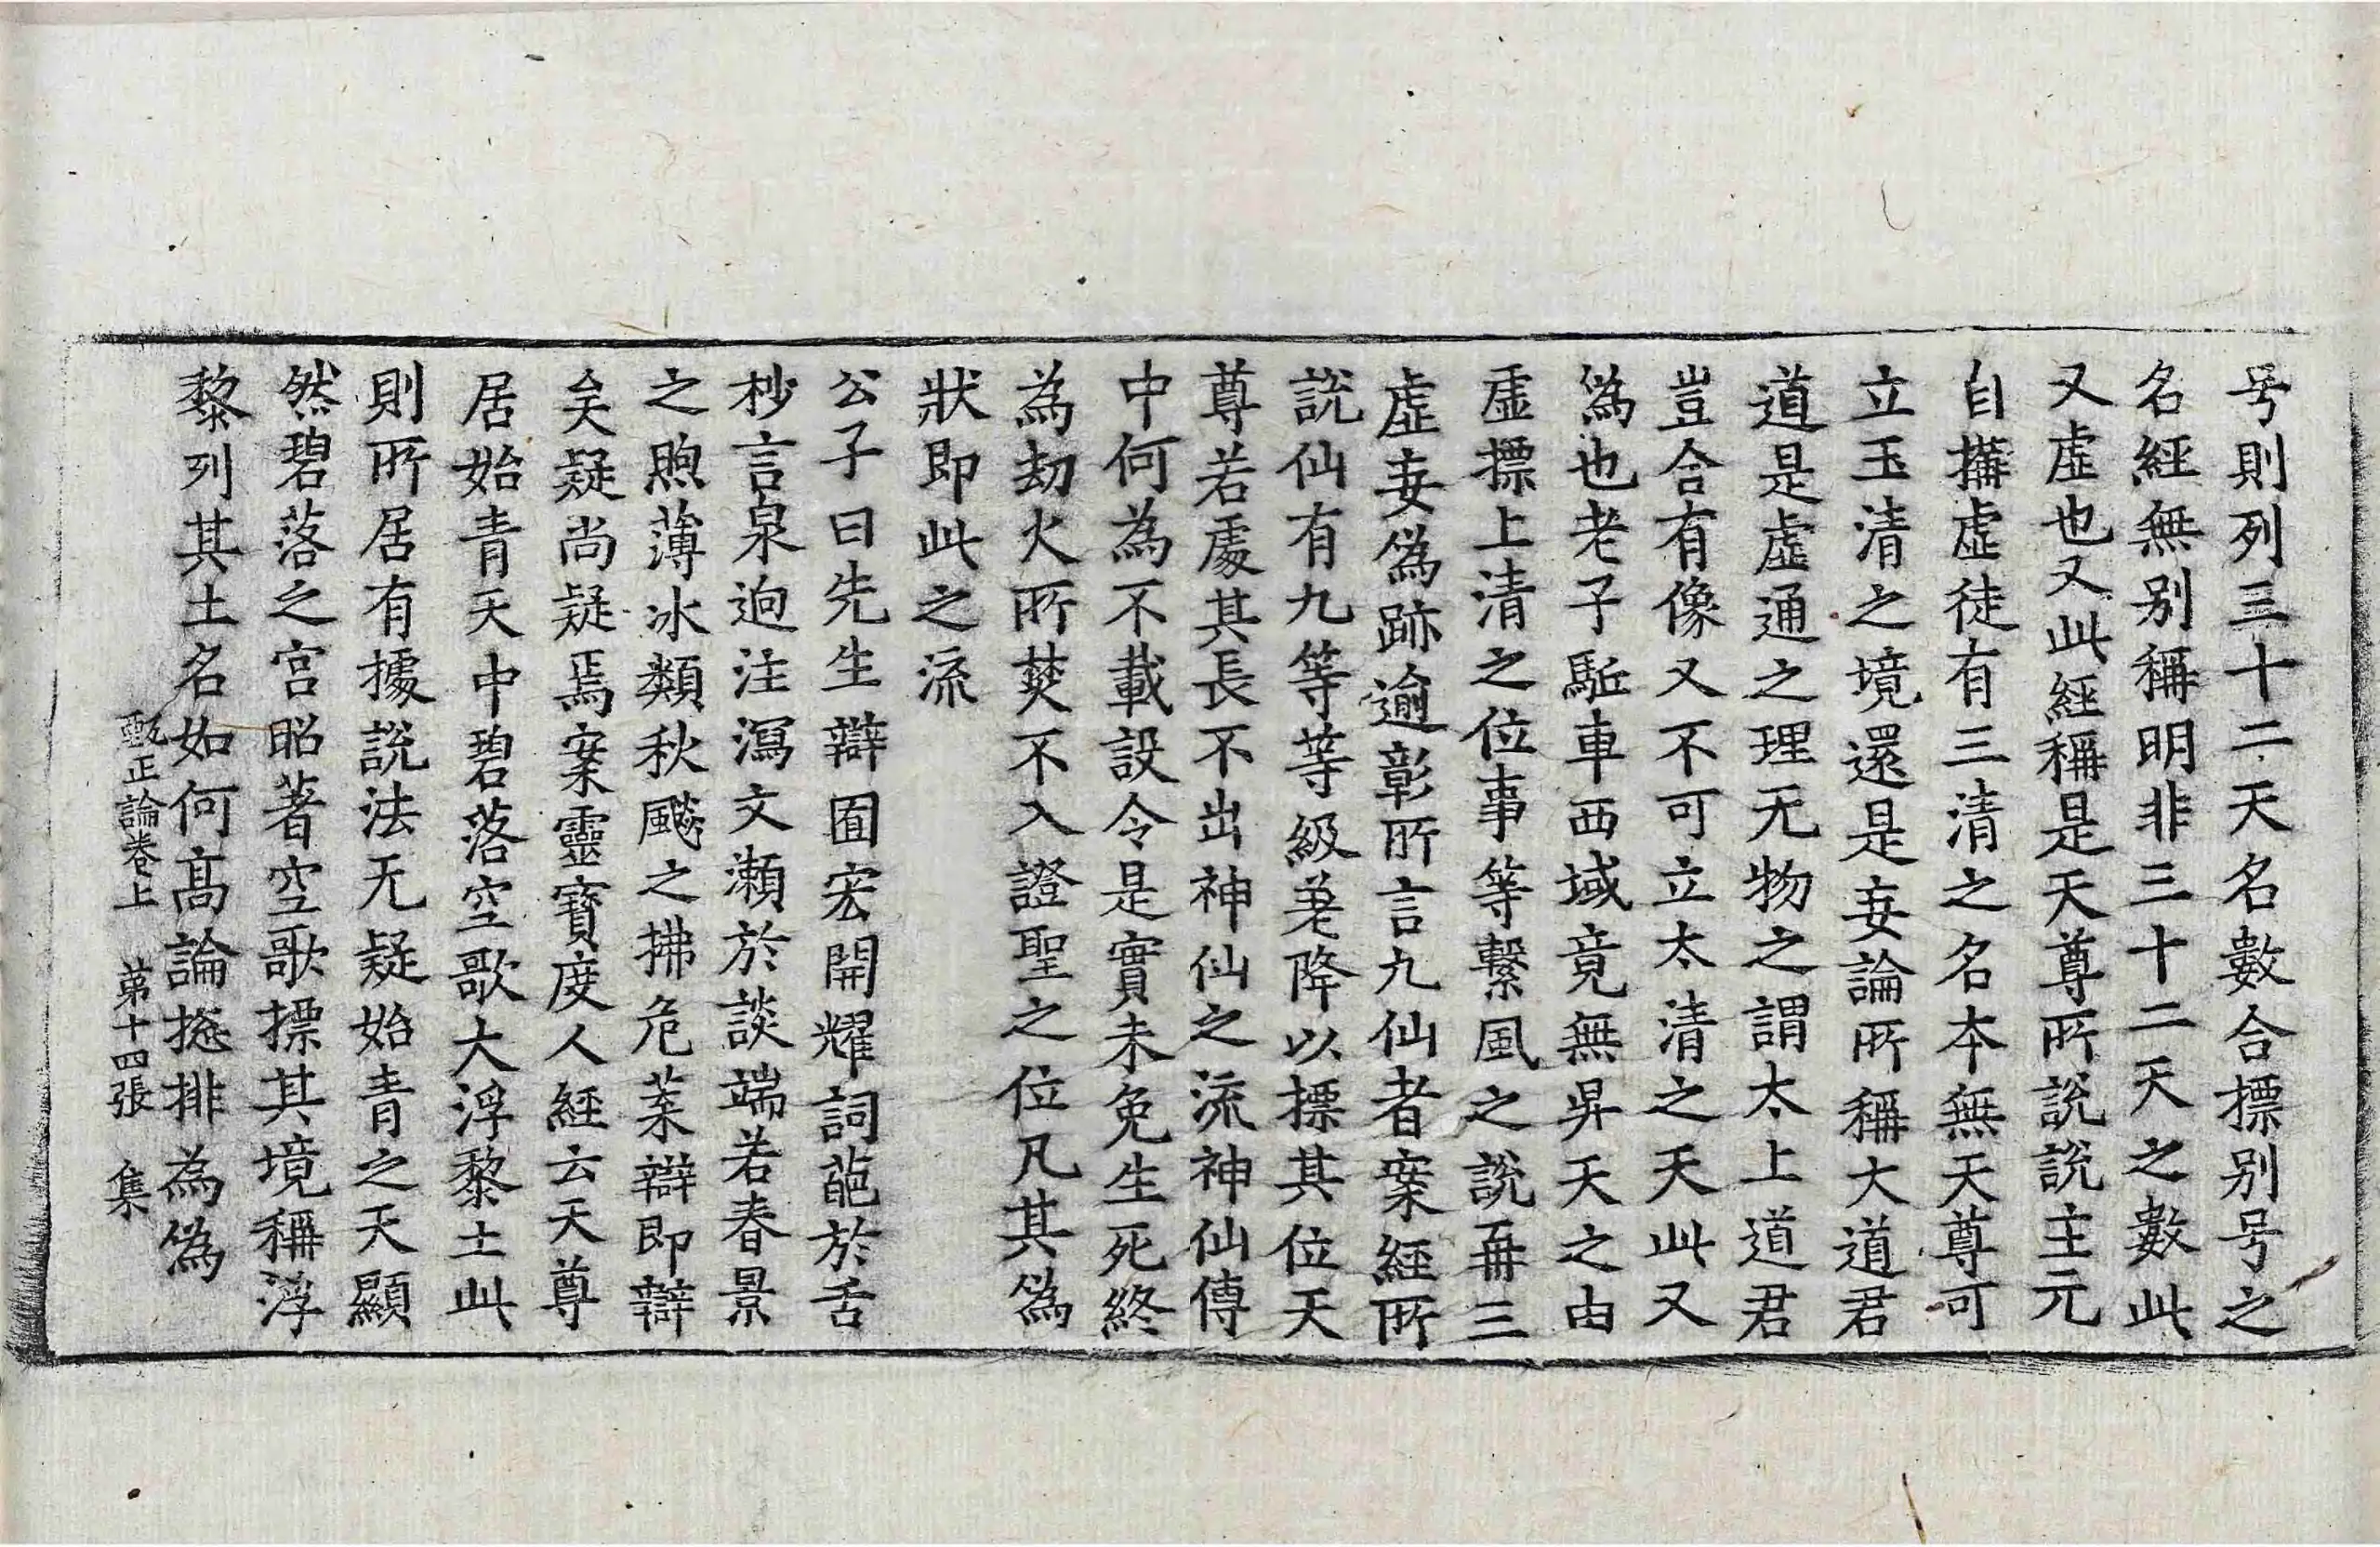 号則列三十二天名數合摽別号之
名經無別稱明非三十二天之數此
又虛也又此經稱是天尊所說說主元
自搆虛徒有三清之名本無天尊可
立玉清之境還是妄論所稱大道君
道是虛通之理无物之謂太上道君
豈合有像又不可立太清之天此又
偽也老子駈車西域竟無昇天之由
虛摽上清之位事等繫風之說再三
虛妄偽跡逾彰所言九仙者案經所
說仙有九等等級差降以摽其位天
尊若處其長不出神仙之流神仙傳
中何為不載設令是實未免生死終
為劫火所焚不入證聖之位凡其偽
狀即此之流
公子曰先生辯囿宏開耀詞葩於舌
杪言泉迥注瀉文瀨於談端若春景
之煦薄冰類秋飈之拂危葉辯即辯
矣疑尚疑焉案靈寶度人經云天尊
居始青天中碧落空歌大浮黎土此
則所居有據說法无疑始青之天顯
然碧落之宮昭著空歌摽其境稱浮
黎列其土名如何高論摠排為偽
甄正論卷上 第十四張 集